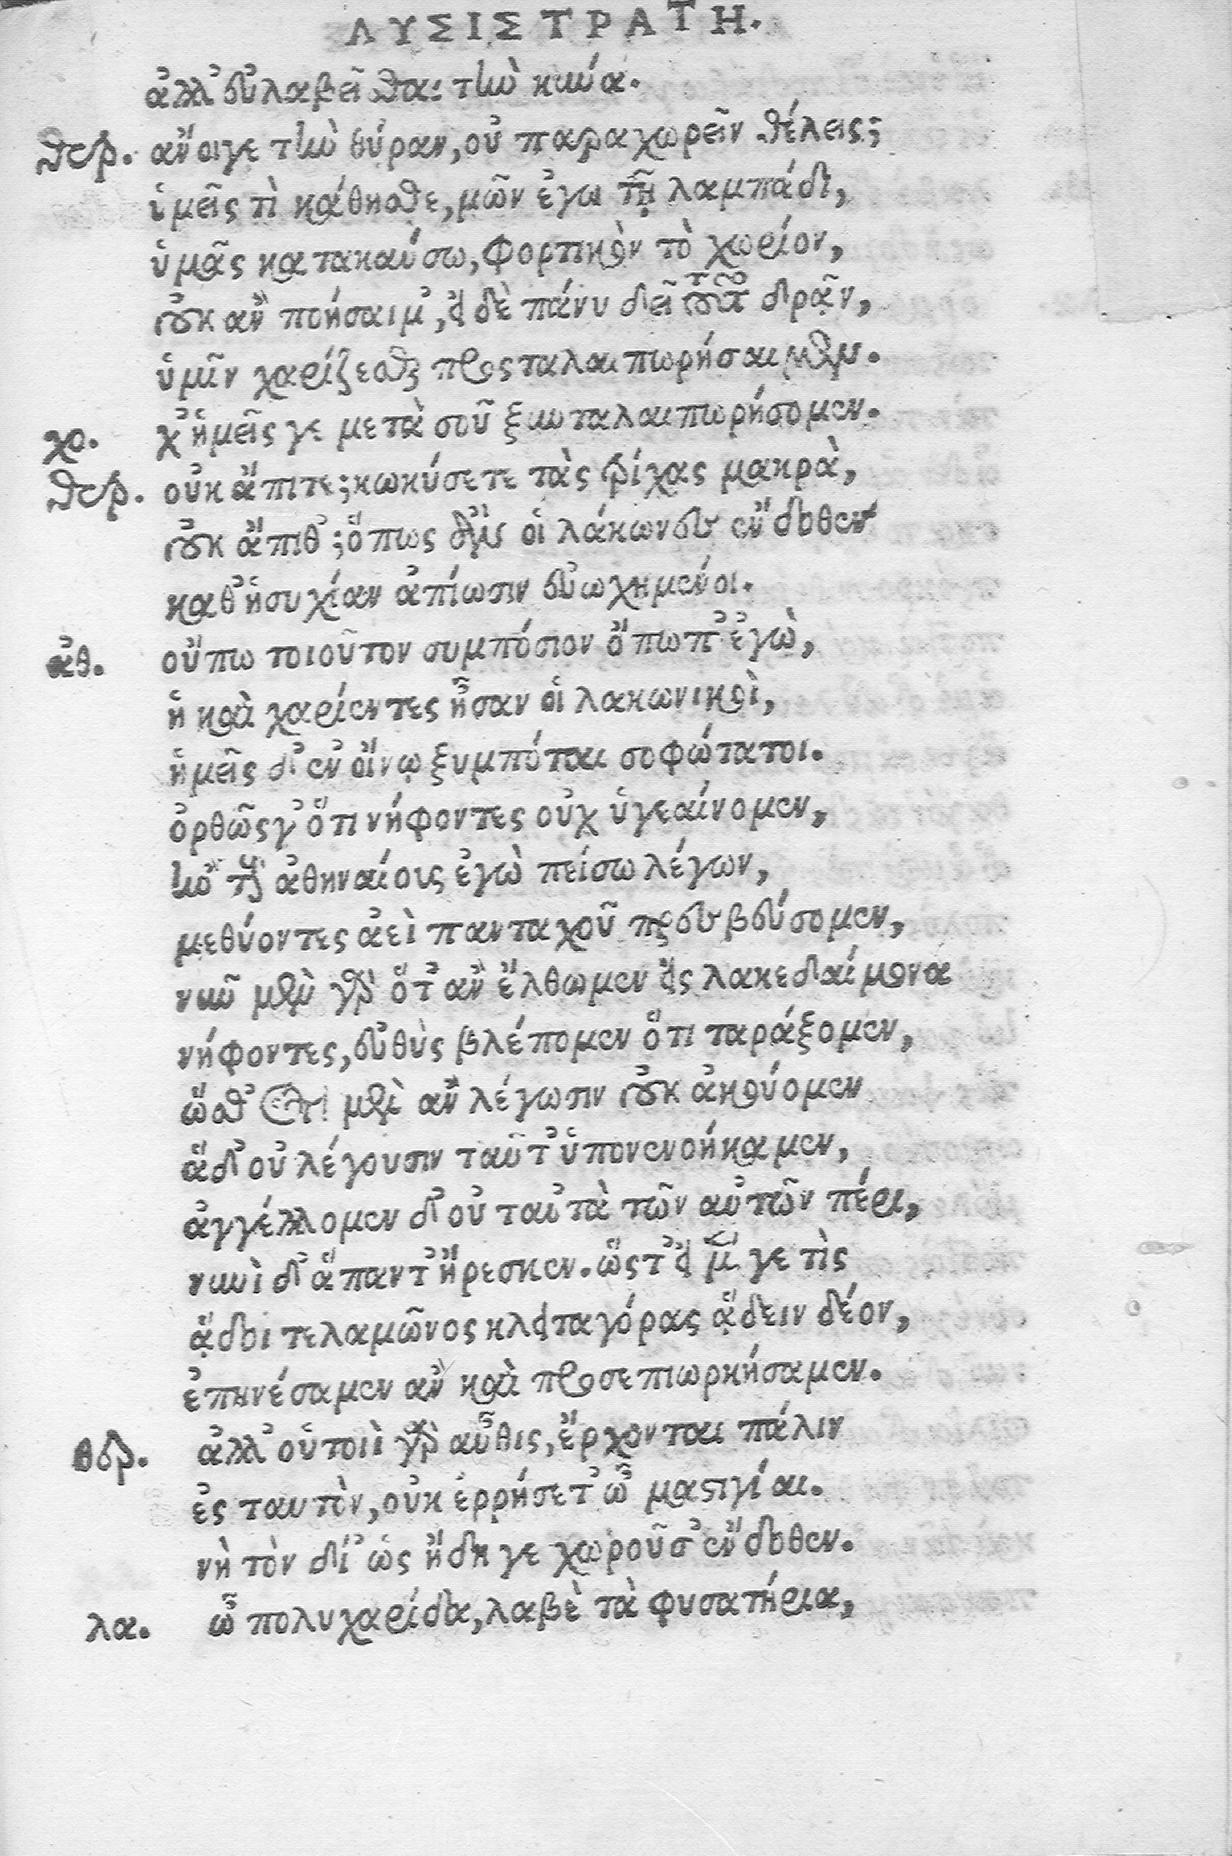 ΛΥΣΙΣΤΡΑΤΗ.
ἀλλ' εὐλαβεῖσθαι τὴν κύνα.
θερ. ἄνοιγε τὴν θύραν, οὐ παραχωρεῖν θέλεις;
ὑμεῖς τὶ κάθησθε, μῶν ἐγὼ τῇ λαμπάδι,
ὑμᾶς κατακαύσω, φορτικὸν τὸ χωρίον,
οὐκ ἂν ποιήσαιμ', εἰ δὲ πάνυ δεῖ τοῦτο δρᾶν,
ὑμῖν χαρίζεσθαι προσταλαιπωρήσαιμεν.
χο. χ' ἡμεῖς γε μετὰ σοῦ ξυνταλαιπωρήσομεν.
θερ. οὐκ ἄπιτε; κωκύσετε τὰς τρίχας μακρὰ,
οὐκ ἄπιθ'; ὅπως ἂν οἱ λάκωνες ἔνδοθεν
καθ' ἡσυχίαν ἀπίωσιν εὐωχημένοι.
ἀθ. οὔπω τοιοῦτον συμπόσιον ὄπωπ' ἐγὼ,
ἦ καὶ χαρίεντες ἦσαν οἱ λακωνικοὶ,
ἡμεῖς δ' ἐν οἴνῳ ξυμπόται σοφώτατοι.
ὀρθῶς γ' ὅτι νήφοντες οὐχ ὑγεαίνομεν,
ἢν τοὺς ἀθηναίους ἐγὼ πείσω λέγων,
μεθύοντες ἀεὶ πανταχοῦ πρεσβεύσομεν,
νῦν μὲν γὰρ ὅτ' ἂν ἔλθωμεν εἰς λακεδαίμονα
νήφοντες, εὐθὺς βλέπομεν ὅτι ταράξομεν,
ὥσθ' ὅτι μὲν ἂν λέγωσιν οὐκ ἀκούομεν
ἃ δ' οὐ λέγουσιν ταῦτ' ὑπονενοήκαμεν,
ἀγγέλλομεν δ' οὐ ταυτὰ τῶν αὐτῶν πέρι,
νυνὶ δ' ἅπαντ' ἤρεσκεν. ὥςτ' εἰ μέν γε τὶς
ᾄδοι τελαμῶνος κλειταγόρας ᾄδειν δέον,
ἐπηνέσαμεν ἂν καὶ προσεπιωρκήσαμεν.
θερ. ἀλλ' οὑτοιὶ γὰρ αὖθις, ἔρχονται πάλιν
ἐς ταυτὸν, οὐκ ἐρρήσετ' ὦ μαστιγίαι.
νὴ τὸν δί' ὡς ἤδη γε χωροῦσ' ἔνδοθεν.
λα. ὦ πολυχαρίδα, λαβὲ τὰ φυσατήρια,